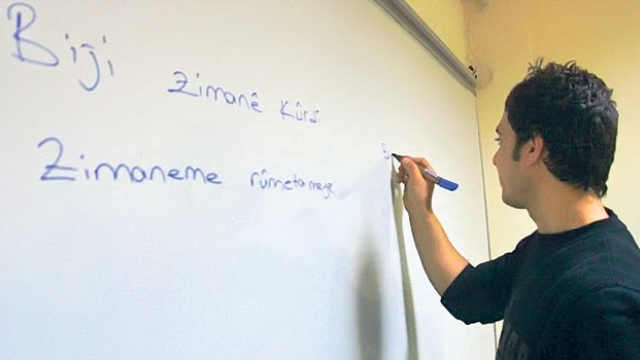 Biji zimanê Kûrdi
Zimaneme rûmetameye